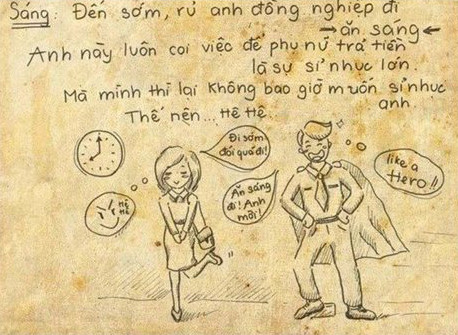 Sáng: Đến sớm, rủ anh đồng nghiệp đi
→ ăn sáng ←
Anh này luôn coi việc để phụ nữ trả tiền
là sự sỉ nhục lớn.
Mà mình thì lại không bao giờ muốn sỉ nhục
anh
Thế nên... Hê Hê
Đi sớm
đói quá đi!
Hê
Hê
Ăn sáng
đi! Anh
mời!
like a
Hero!!